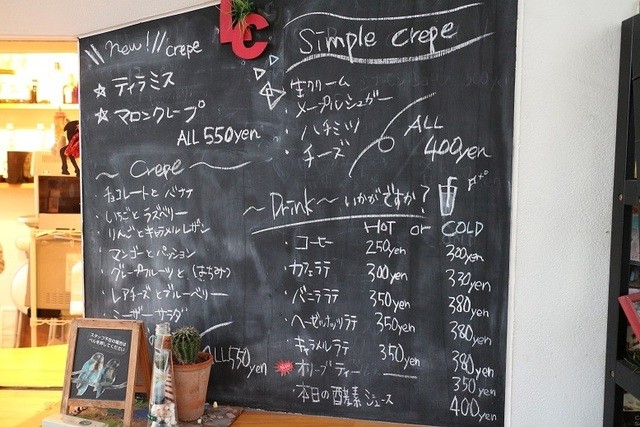 LC
New!! crepe
☆ ティラミス
☆ マロンクレープ
ALL 550yen
~ Crepe ~
チョコレートと バナナ
・いちごと ラズベリー
・りんごと キャラメルレザン
・マンゴーと パッション
・グレープフルーツと (はちみつ)
・レアチーズと ブルーベリー
・シーザーサラダ
ALL 550yen
Simple crepe
・生クリーム
・メープルシュガー
・ハチミツ
・チーズ
ALL
400yen
~ Drink ~ いかがですか?
HOT or COLD
・コーヒー 250yen 300yen
・カフェラテ 300yen 330yen
・バニララテ 350yen 380yen
・ヘーゼルナッツラテ 350yen 380yen
・キャラメルラテ 350yen 380yen
オリーブティー — 350yen
・本日の酵素ジュース 400yen
スタッフ不在の場合は
ベルを押してください